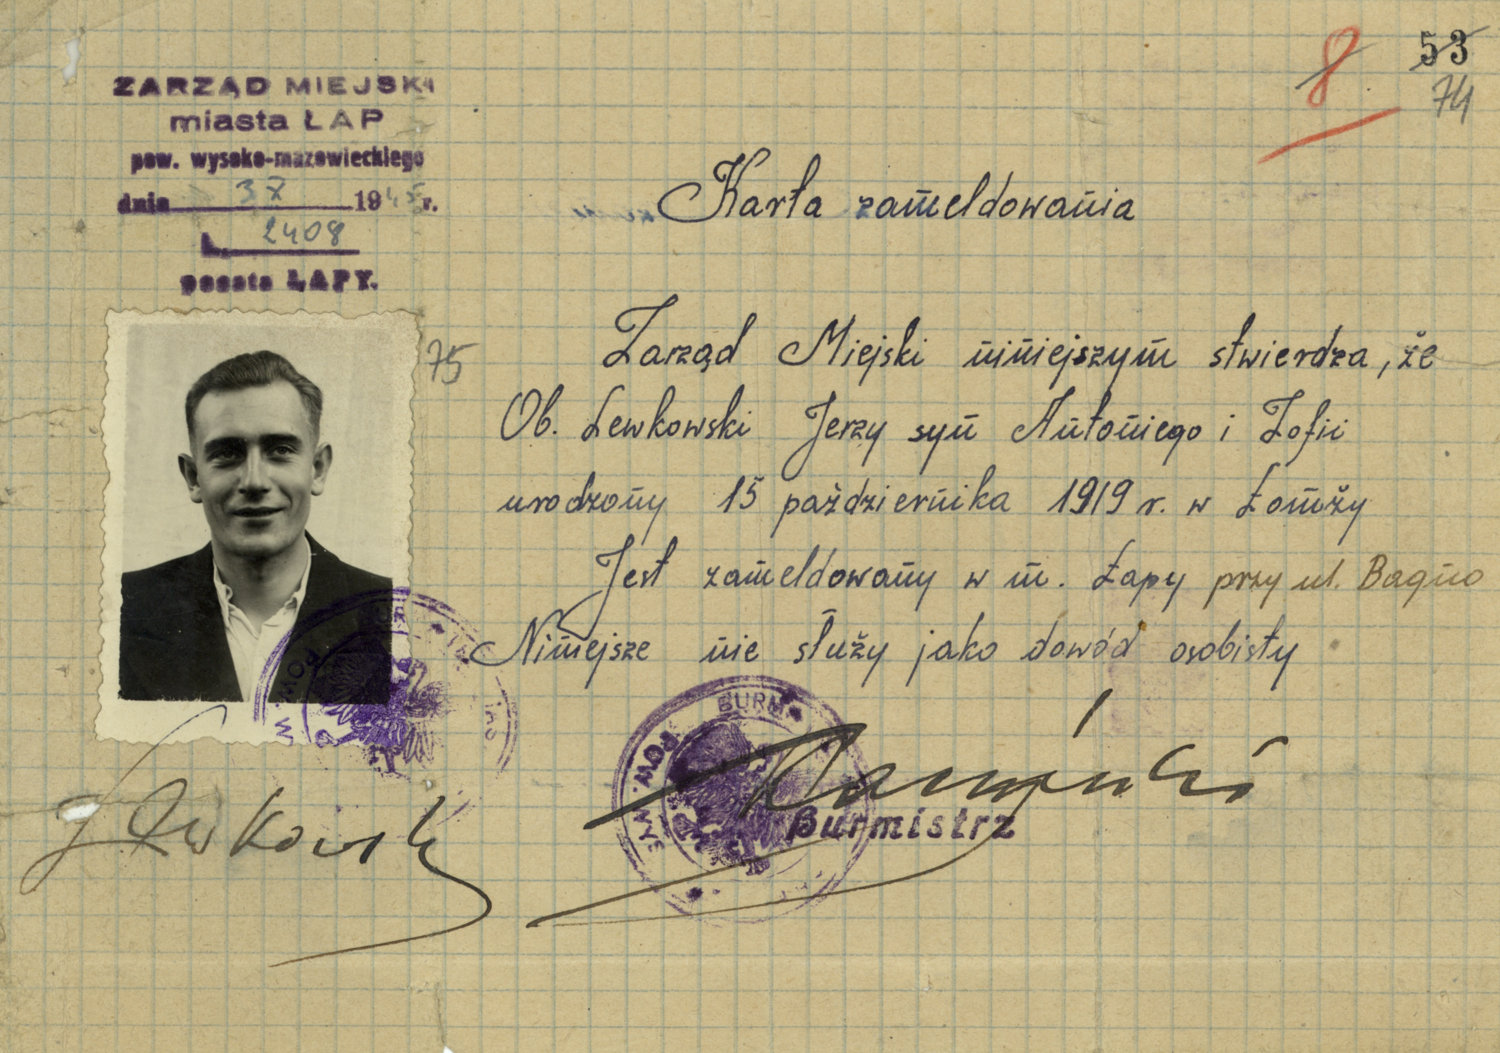 ZARZĄD MIEJSKI
miasta ŁAP
pow. wysoko-mazowieckiego
dnia 3 X 1945 r.
L. 2408
poczta ŁAPY.
8
53
74
75
Karta zameldowania
Zarząd Miejski niniejszym stwierdza, że
Ob. Lewkowski Jerzy syn Antoniego i Zofii
urodzony 15 października 1919 r. w Łomży
Jest zameldowany w m. Łapy przy ul. Bagno
Niniejsze nie służy jako dowód osobisty
POW.
BURM
POW.
WYS
Burmistrz
J Lewkowski